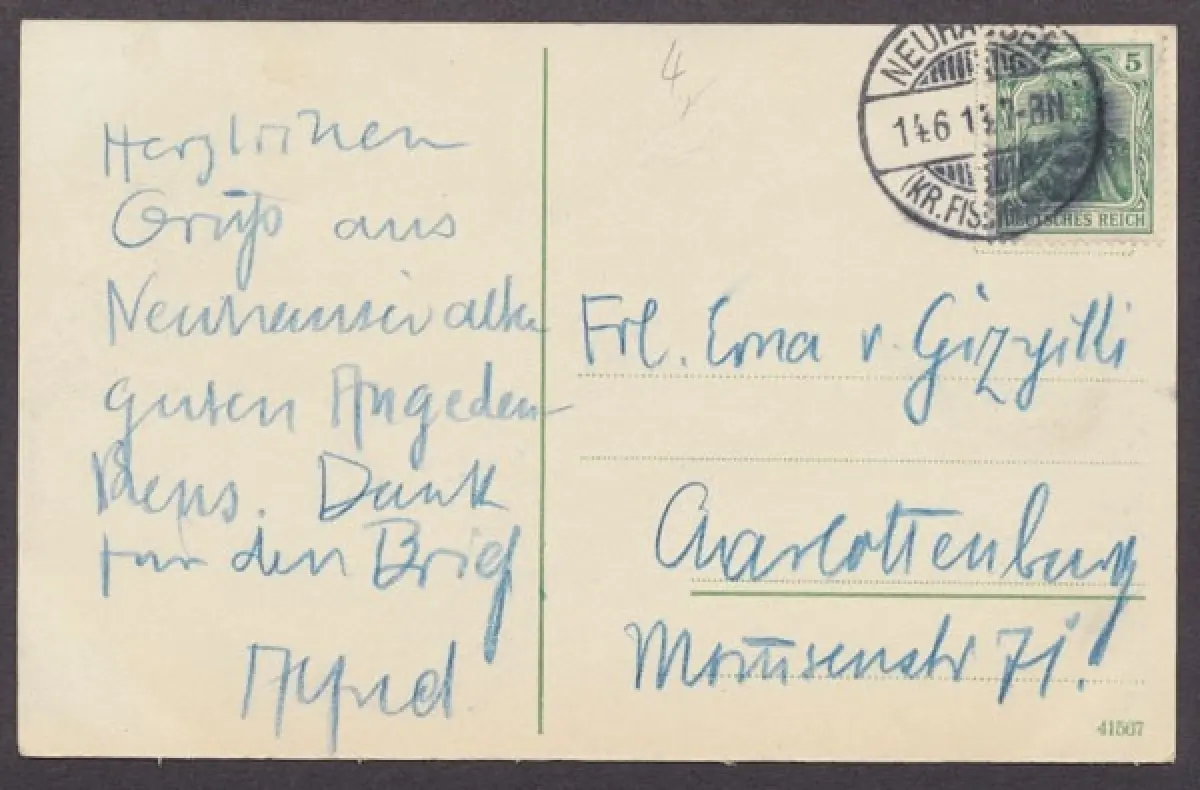 Herzlichen
Gruß aus
Neuhäuser alten
guten Angeden-
kens. Dank
für den Brief
Alfred
4
NEUHÄUSER
14.6.1 7-8N
(KR.FIS
5
DEUTSCHES REICH
Frl. Erna v. Gizycki
Charlottenburg
Mommsenstr 71.
41567